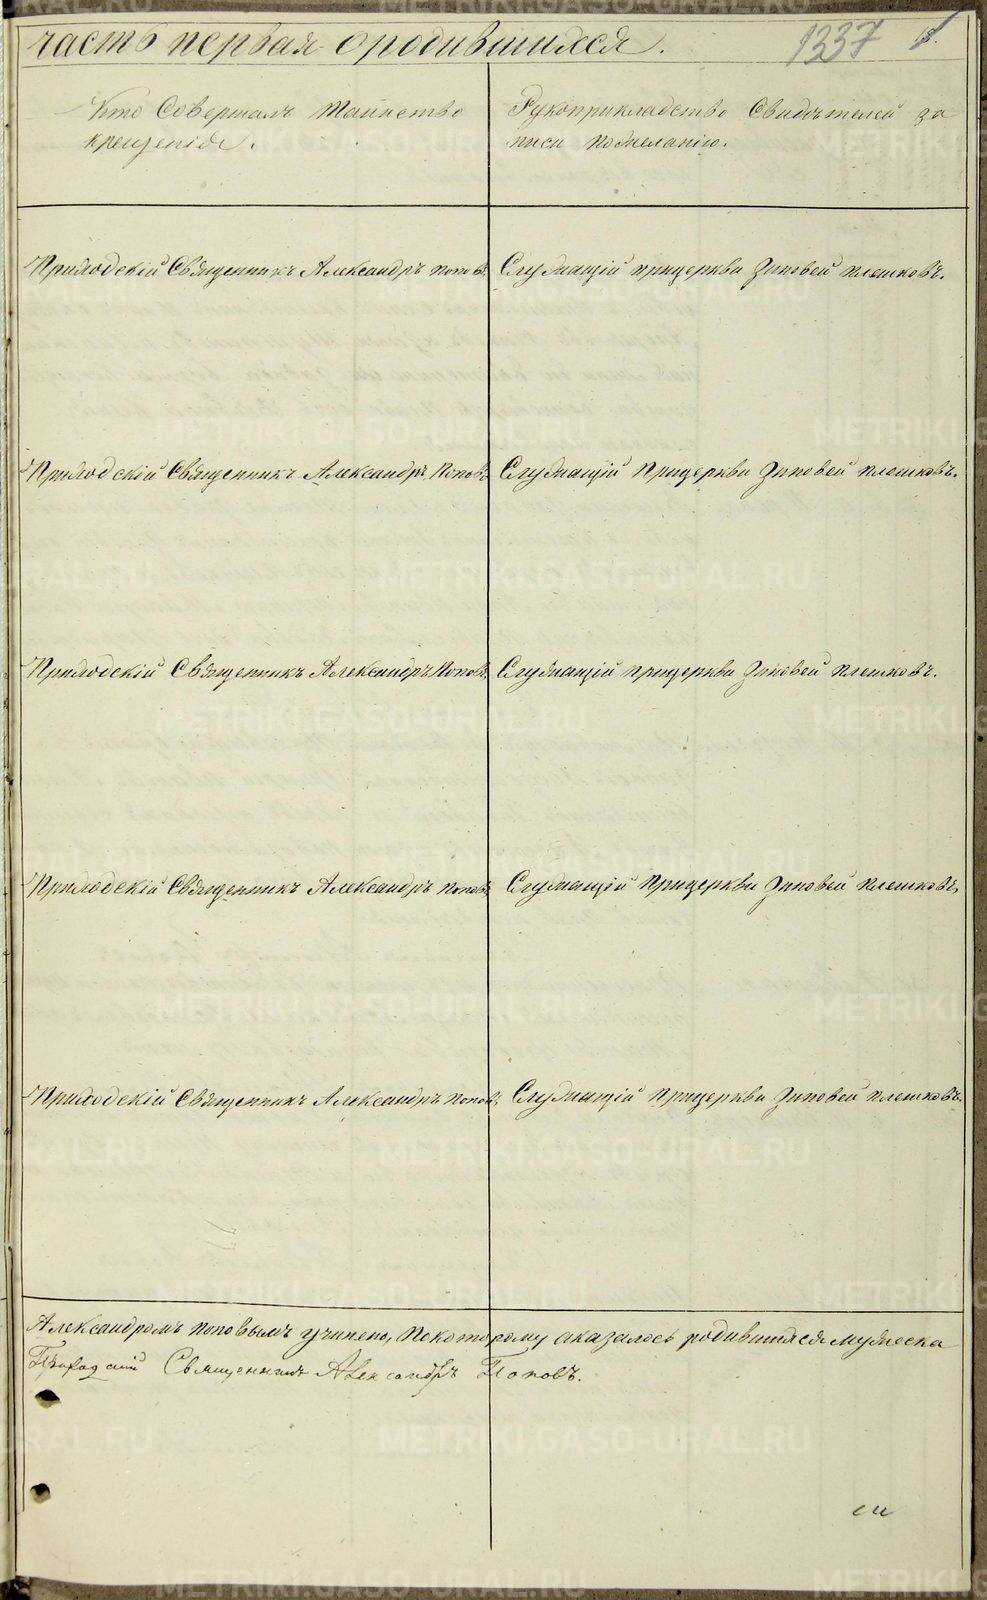 часть первая о родившихся. 1337
Кто Совершалъ Таинство
крещенія.
Рукоприкладство Свидѣтелей за
писи пожеланію.
Приходскій Священникъ Александръ поповъ. Служащій прицеркви Зиновей плешковъ.
Приходскій Священникъ Александръ Поповъ Служащій Прицеркви Зиновей плешковъ.
Приходскій Священникъ Александръ Поповъ. Служащій прицеркви Зиновей плешковъ.
Приходскій Священникъ Александръ поповъ. Служащій прицеркви Зиновей плешковъ,
Приходскій Священникъ Александръ поповъ. Служащій прицеркви Зиновей плешковъ.
Александромъ поповымъ учинено, покоторому аказалось родившихся мужеска
Приходский Священникъ Александръ Поповъ.
METRIKI.GASO-URAL.RU